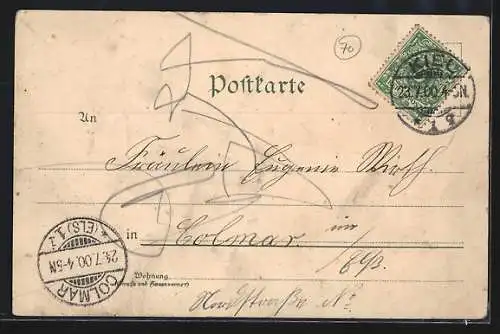 70
Postkarte
KIEL
23.7.00.4-5N.
An
Fräulein Eugenie Wirth
in
Colmar im
Els.
COLMAR
(ELS) 1
24.7.00.4-5N
Wohnung
(Strasse und Hausnummer)
Nordstraße No